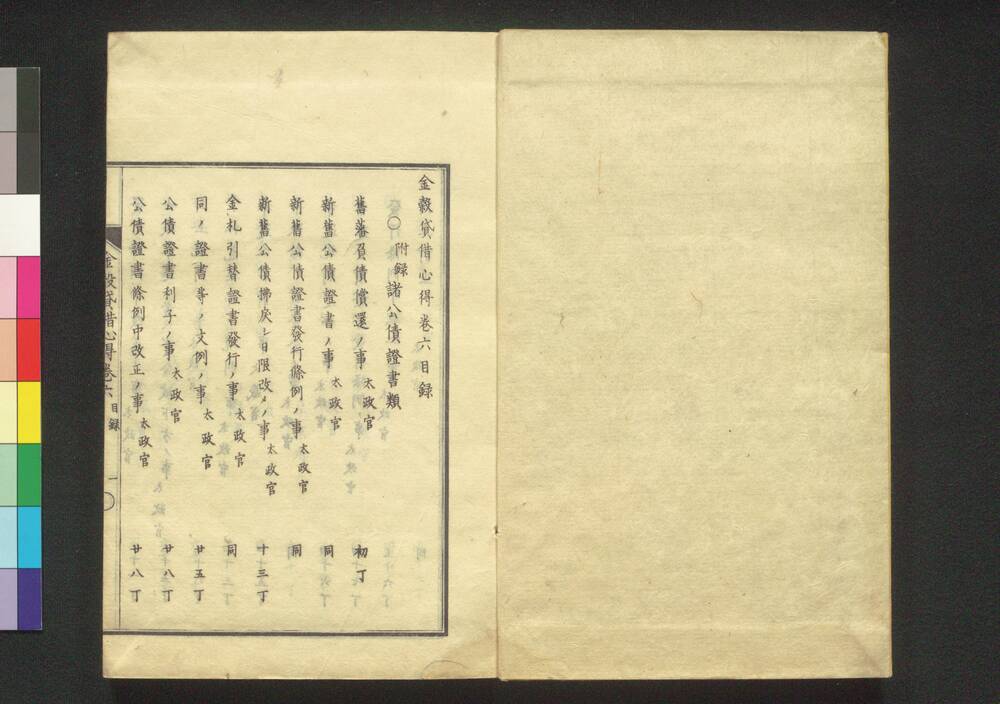 金穀貸借心得卷六目録
○附録諸公債證書類
舊藩負債償還ノ事 太政官 初丁
新舊公債證書ノ事 太政官 同
新舊公債證書發行條例ノ事 太政官 同
新舊公債拂戻シ日限改メノ事 太政官 十三丁
金札引替證書發行ノ事 太政官 同
同ノ證書等ノ文例ノ事 太政官 廿五丁
公債證書利子ノ事 太政官 廿八丁
公債證書條例中改正ノ事 太政官 廿八丁
金穀貸借心得卷六 目録 一